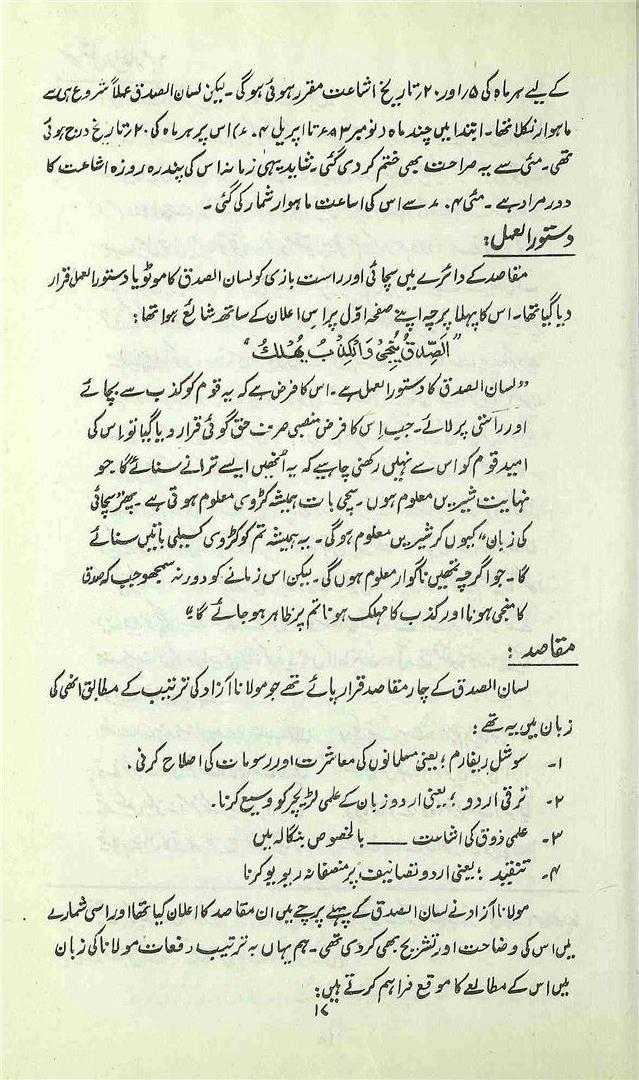 کے لیے ہر ماہ کی ۵؍ اور ۲۰؍ تاریخ اشاعت مقرر ہوئی ہوگی۔ لیکن لسان الصدق عملاً شروع ہی سے
ماہوار نکلا تھا۔ ابتدا میں چند ماہ (نومبر ۱۹۰۳ء تا اپریل ۱۹۰۴ء) اس پر ہر ماہ کی ۲۰؍ تاریخ درج ہوتی
تھی۔ مئی سے یہ صراحت بھی ختم کر دی گئی۔ شاید یہی زمانہ اس کی پندرہ روزہ اشاعت کا
دور مراد ہے۔ مئی ۱۹۰۴ء سے اس کی اشاعت ماہوار شمار کی گئی۔
دستور العمل:
مقاصد کے دائرے میں سچائی اور راست بازی کو لسان الصدق کا موٹو یا دستور العمل قرار
دیا گیا تھا۔ اس کا پہلا پرچہ اپنے صفحہ اوّل پر اس اعلان کے ساتھ شائع ہوا تھا:
"اَلصِّدْقُ یُنْجِیْ وَالْکِذْبُ یُھْلِكُ"
"لسان الصدق کا دستور العمل ہے۔ اس کا فرض ہے کہ یہ قوم کو کذب سے بچائے
اور راستی پر لائے۔ جب اس کا فرض منصبی صرف حق گوئی قرار دیا گیا تو اس کی
امید قوم کو اس سے نہیں رکھنی چاہیے کہ یہ انھیں ایسے ترانے سنائے گا جو
نہایت شیریں معلوم ہوں۔ سچی بات ہمیشہ کڑوی معلوم ہوتی ہے۔ پھر سچائی
کی زبان" کیوں کر شیریں معلوم ہوگی۔ یہ ہمیشہ تم کو کڑوی کسیلی باتیں سنائے
گا۔ جو اگرچہ تمھیں ناگوار معلوم ہوں گی۔ لیکن اس زمانے کو دور نہ سمجھو جب کہ صدق
کا منجی ہونا اور کذب کا مہلک ہونا تم پر ظاہر ہو جائے گا"
مقاصد:
لسان الصدق کے چار مقاصد قرار پائے تھے جو مولانا آزاد کی ترتیب کے مطابق انھی کی
زبان میں یہ تھے:
۱۔ سوشل ریفارم؛ یعنی مسلمانوں کی معاشرت اور رسومات کی اصلاح کرنی۔
۲۔ ترقی اردو؛ یعنی اردو زبان کے علمی لٹریچر کو وسیع کرنا۔
۳۔ علمی ذوق کی اشاعت ــــــ بالخصوص بنگالہ میں
۴۔ تنقید؛ یعنی اردو تصانیف پر منصفانہ ریویو کرنا
مولانا آزاد نے لسان الصدق کے پہلے پرچے میں ان مقاصد کا اعلان کیا تھا اور اسی شمارے
میں اس کی وضاحت اور تشریح بھی کر دی تھی۔ ہم یہاں بہ ترتیب دفعات مولانا کی زبان
میں اس کے مطالعے کا موقع فراہم کرتے ہیں:
۱۷